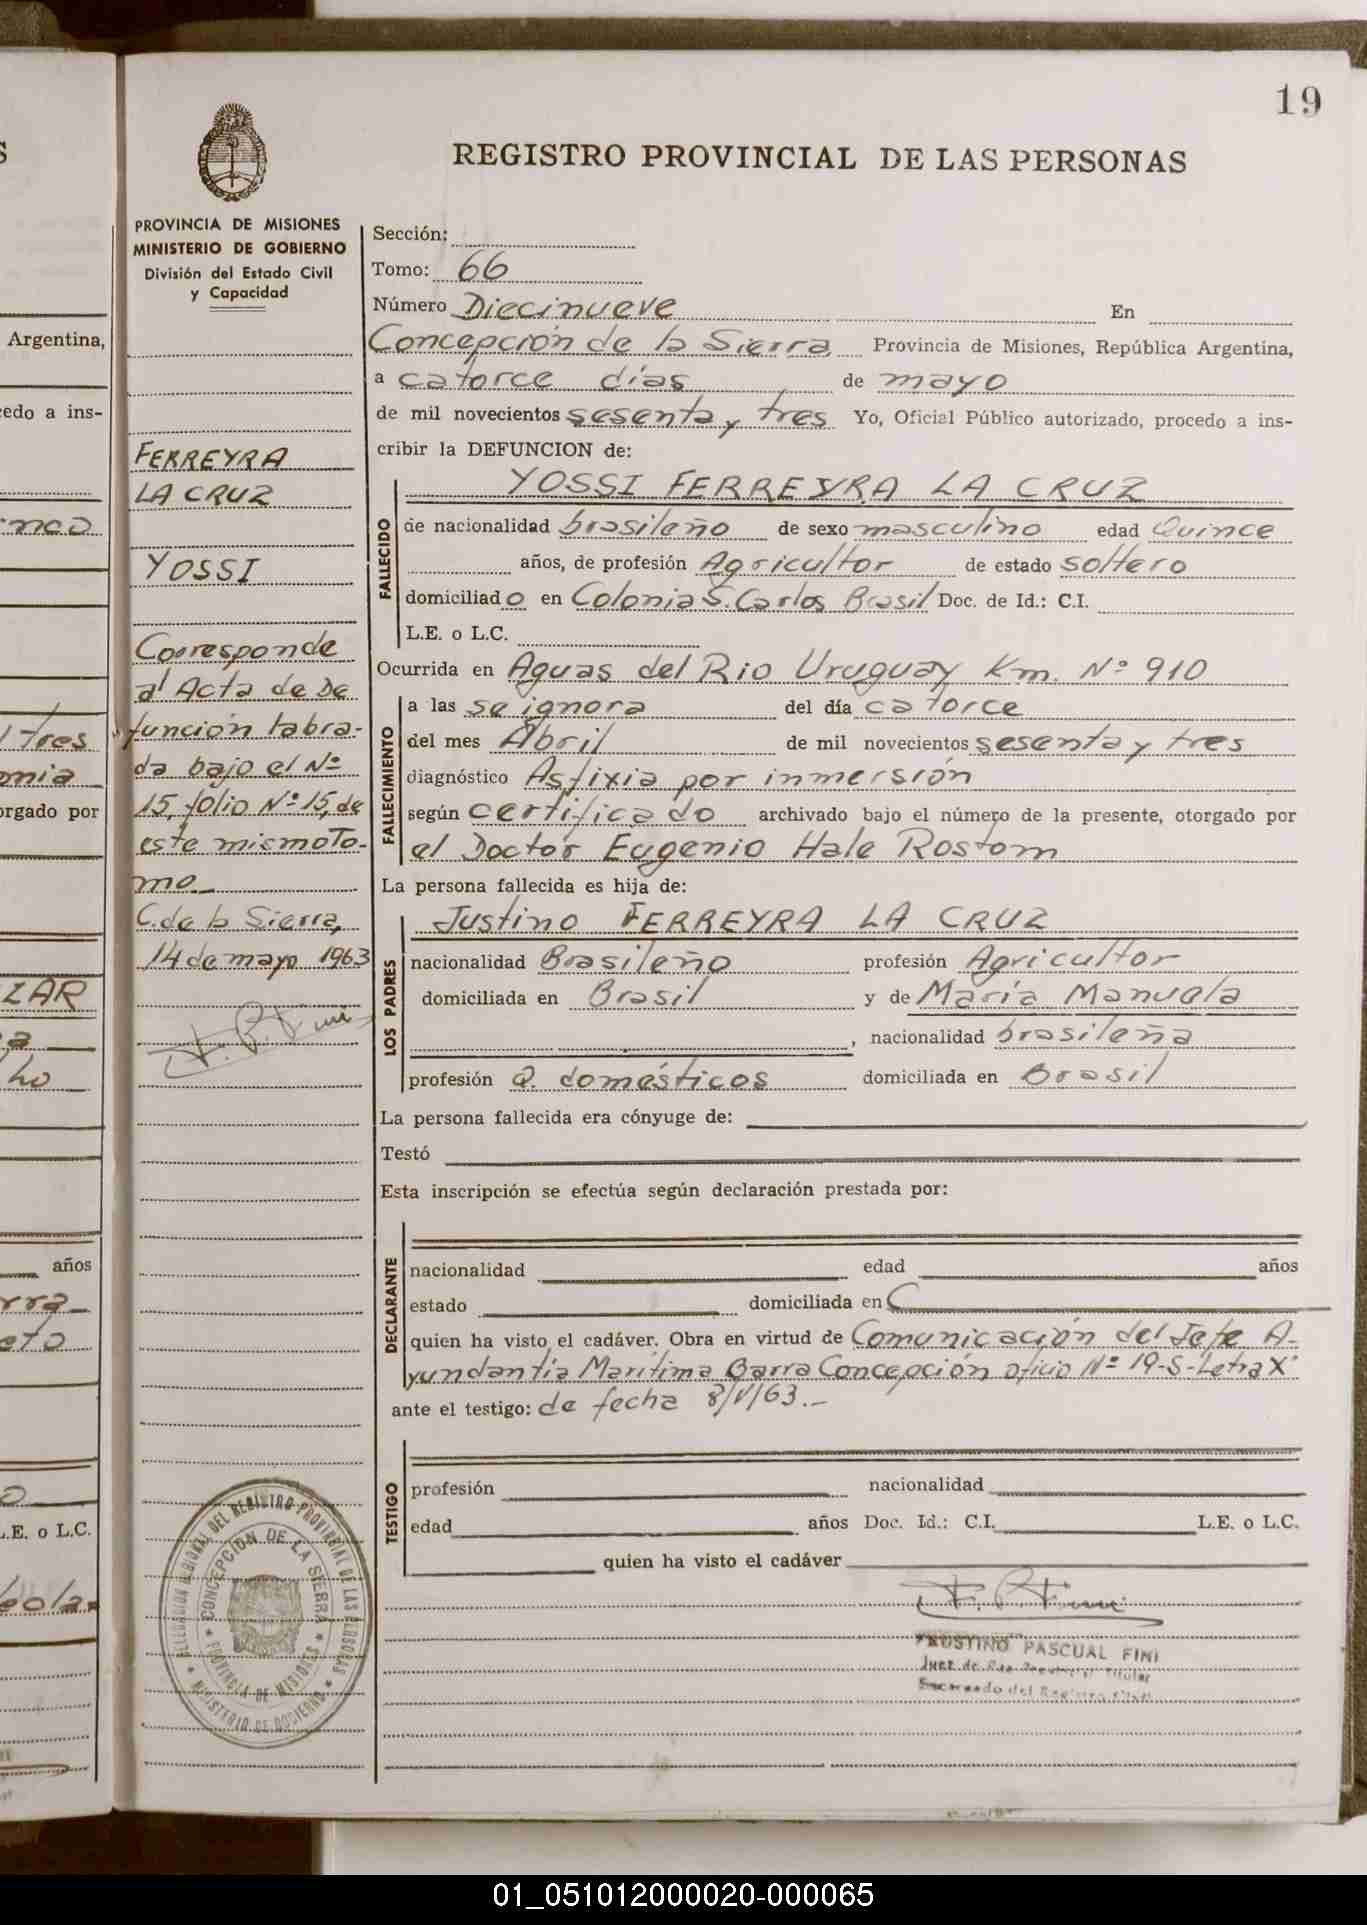 19
REGISTRO PROVINCIAL DE LAS PERSONAS
PROVINCIA DE MISIONES
MINISTERIO DE GOBIERNO
División del Estado Civil
y Capacidad
FERREYRA
LA CRUZ
YOSSI
Corresponde
al Acta de De
función labra-
da bajo el Nº
15, folio Nº 15, de
este mismo To-
mo
C. de la Sierra,
14 de mayo 1963
Sección:
Tomo: 66
Número Diecinueve En
Concepción de la Sierra Provincia de Misiones, República Argentina,
a catorce días de mayo
de mil novecientos sesenta y tres Yo, Oficial Público autorizado, procedo a ins-
cribir la DEFUNCION de:
FALLECIDO
YOSSI FERREYRA LA CRUZ
de nacionalidad brasileño de sexo masculino edad Quince
años, de profesión Agricultor de estado soltero
domiciliado en Colonia S. Carlos Brasil Doc. de Id.: C.I.
L.E. o L.C.
Ocurrida en Aguas del Rio Uruguay Km. Nº 910
FALLECIMIENTO
a las se ignora del día catorce
del mes Abril de mil novecientos sesenta y tres
diagnóstico Asfixia por inmersión
según certificado archivado bajo el número de la presente, otorgado por
el Doctor Eugenio Hale Rostom
La persona fallecida es hija de:
LOS PADRES
Justino FERREYRA LA CRUZ
nacionalidad Brasileño profesión Agricultor
domiciliada en Brasil y de María Manuela
, nacionalidad brasileña
profesión Q. domésticos domiciliada en Brasil
La persona fallecida era cónyuge de:
Testó
Esta inscripción se efectúa según declaración prestada por:
DECLARANTE
nacionalidad edad años
estado domiciliada en
quien ha visto el cadáver. Obra en virtud de Comunicación del Jefe A-
yundantía Marítima Barra Concepción Oficio Nº 19-S-Letra X
ante el testigo: de fecha 8/V/63.-
TESTIGO
profesión nacionalidad
edad años Doc. Id.: C.I. L.E. o L.C.
quien ha visto el cadáver
F. P. Fini
FAUSTINO PASCUAL FINI
Juez de Paz Titular
Encargado del Registro Civil
DELEGACION REGIONAL DEL REGISTRO PROVINCIAL DE LAS PERSONAS
CONCEPCION DE LA SIERRA
PROVINCIA DE MISIONES
MINISTERIO DE GOBIERNO
Argentina,
edo a ins-
tres
orgado por
años
L.E. o L.C.
01_051012000020-000065